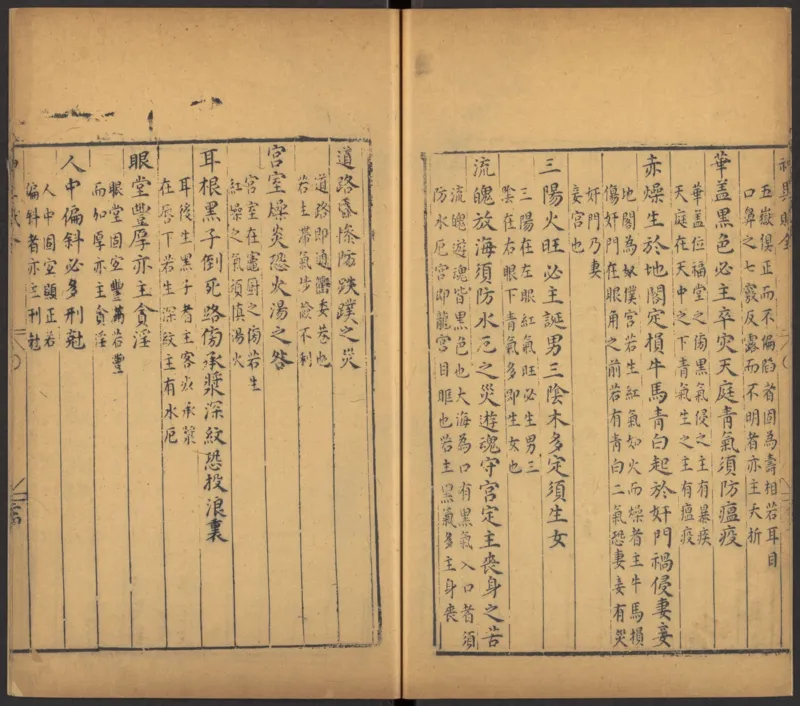 五嶽俱正而不偏陷者固為壽相若耳目
口鼻之七竅反露而不明者亦主夭折
華蓋黑色必主卒灾天庭青氣須防瘟疫
華蓋位福堂之傍黑氣侵之主有暴疾
天庭在天中之下青氣生之主有瘟疫
赤燥生於地閣定損牛馬青白起於奸門禍侵妻妾
地閣為奴僕宮若生紅氣如火而燥者主牛馬損
傷奸門在眼角之前若有青白二氣恐妻妾有災
奸門乃妻
妾宮也
三陽火旺必主誕男三陰木多定須生女
三陽在左眼紅氣旺必生男三
陰在右眼下青氣多即生女也
流魄放海須防水厄之災遊魂守宮定主喪身之苦
流魄遊魂皆黑色也大海為口有黑氣入口者須
防水厄宮即龍宮目眶也若生黑氣多主身喪
道路昏慘防跌蹼之災
道路即通衢委巷也
若生滯氣步
不利
宮室燥炎恐火湯之咎
宮室在竈厨之傍若生
紅燥之氣須慎湯火
耳根黑子倒死路傍承漿深紋恐投浪裏
耳後生黑子者主客死承漿
在唇下若生深紋主有水厄
眼堂豐厚亦主貪淫
眼堂固宜豐滿若豐
而加厚亦主貪淫
人中偏斜必多刑尅
人中固宜頤正若
偏斜者亦主刑尅